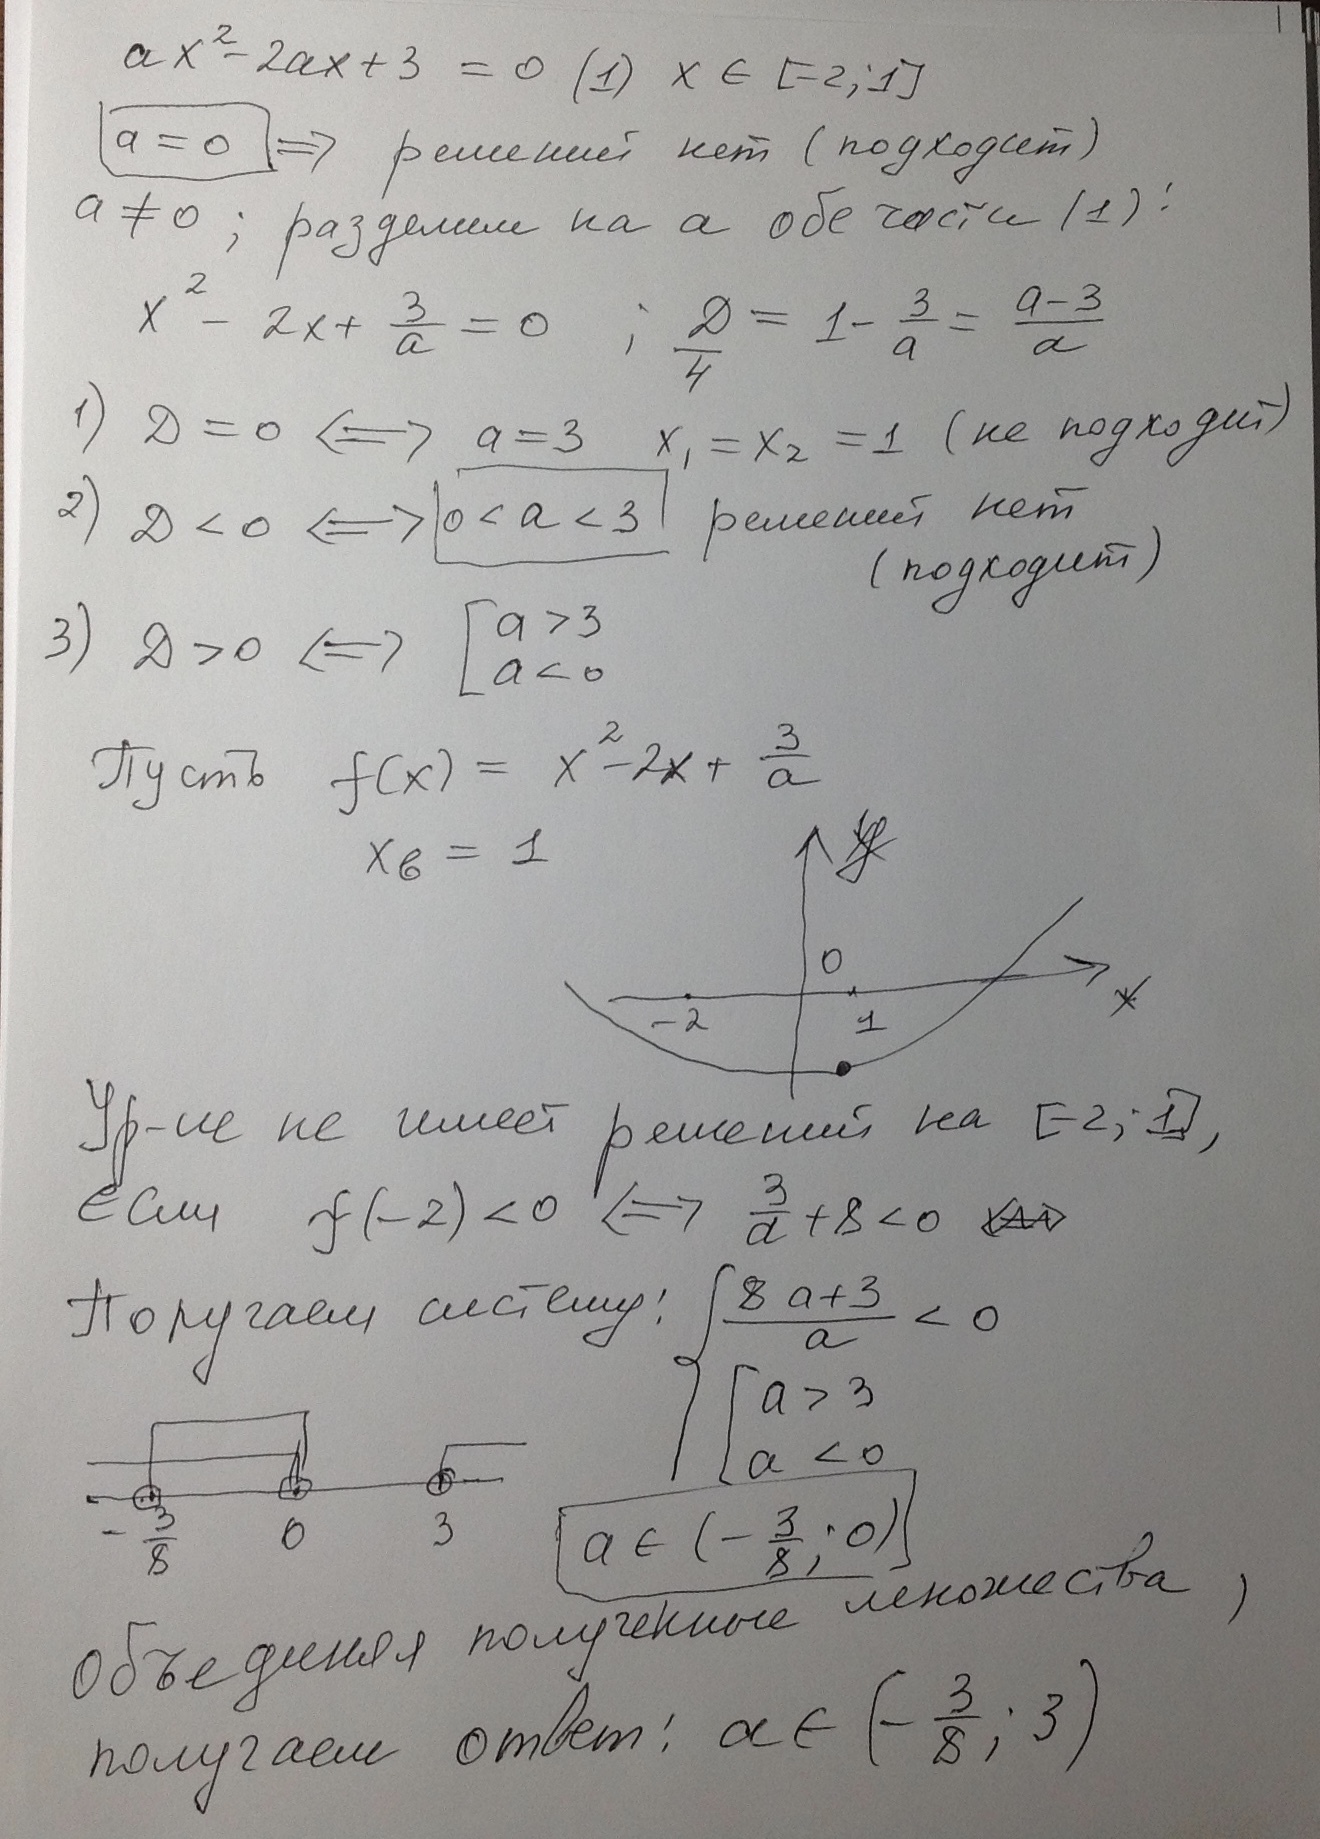 ax² - 2ax + 3 = 0 (1) x ∈ [-2; 1]
a = 0 ⟹ решений нет (подходит)
a ≠ 0; разделим на a обе части (1):
x² - 2x + 3/a = 0 ; D/4 = 1 - 3/a = (a-3)/a
1) D = 0 ⟺ a = 3 x₁ = x₂ = 1 (не подходит)
2) D < 0 ⟺ 0 < a < 3 решений нет
(подходит)
3) D > 0 ⟺ [ a > 3
a < 0
Пусть f(x) = x² - 2x + 3/a
xв = 1
y
0
-2 1 x
Ур-ие не имеет решений на [-2; 1],
если f(-2) < 0 ⟺ 3/a + 8 < 0
Получаем систему: { (8a+3)/a < 0
[ a > 3
a < 0
-3/8 0 3
a ∈ (-3/8; 0)
Объединяя полученные множества,
получаем ответ: a ∈ (-3/8; 3)